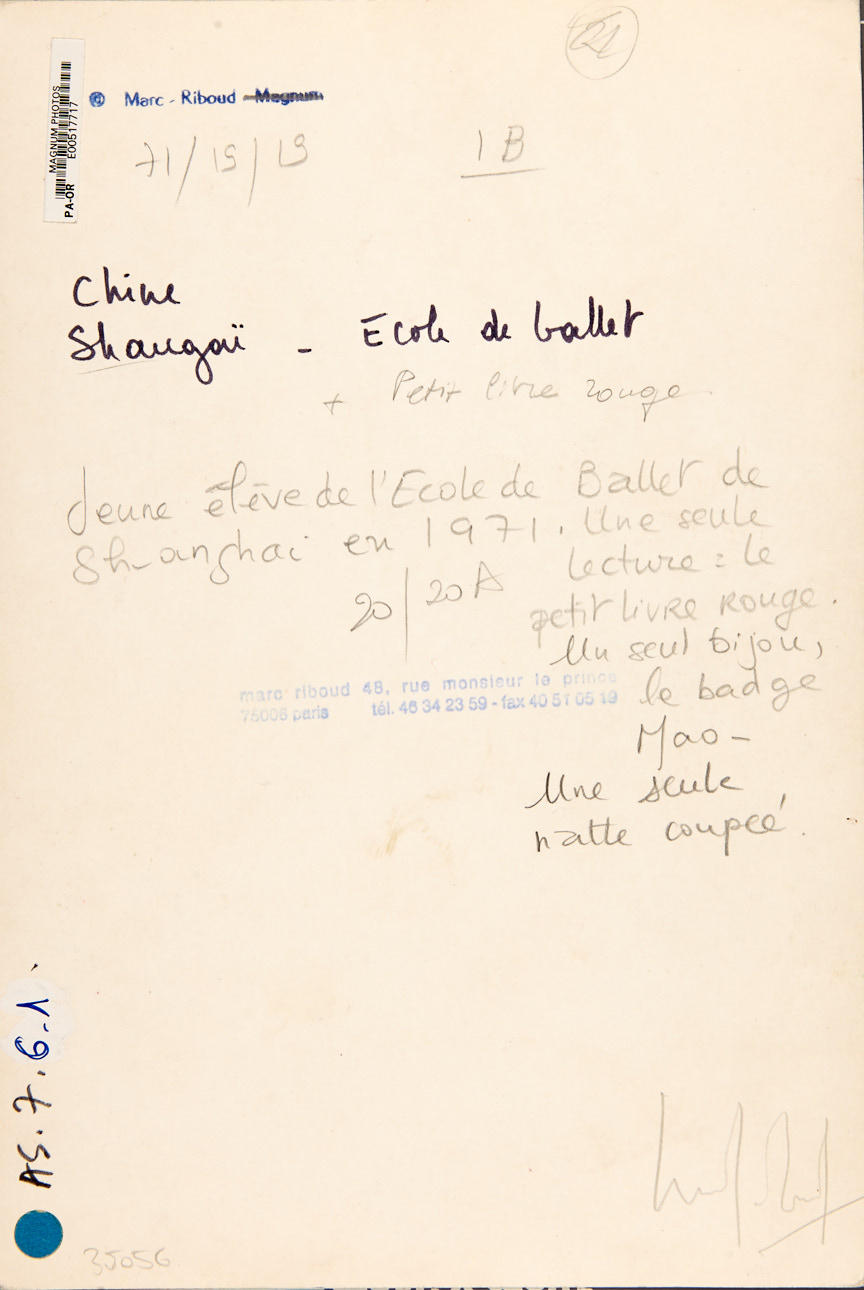 21
MAGNUM PHOTOS
E00517717
PA-OR
© Marc - Riboud Magnum
71/19/19
1B
Chine
Shangaï - Ecole de ballet
+ Petit livre rouge
Jeune élève de l'Ecole de Ballet de
Shanghai en 1971. Une seule
lecture : le
20/20A
petit livre rouge.
Un seul bijou,
marc riboud 48, rue monsieur le prince
75006 paris tél. 46 34 23 59 - fax 40 51 05 19
le badge
Mao -
Une seule
natte coupée.
AS.7.6.1
35056